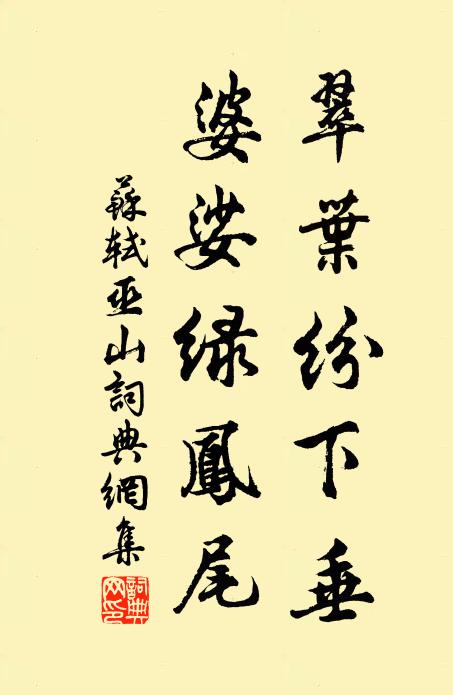 翠葉紛下垂
婆娑緑鳳尾
蘇軾巫山詞典網集
詞典網印